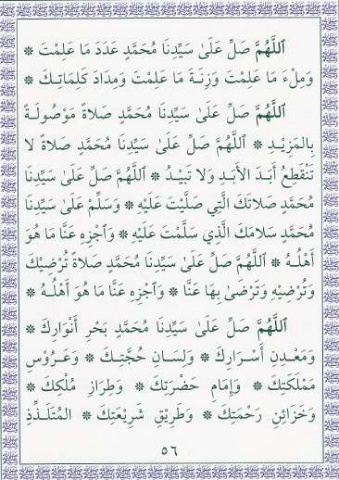 اَللَّهُمَّ صَلِّ عَلَىٰ سَيِّدِنَا مُحَمَّدٍ عَدَدَ مَا عَلِمْتَ ❁
وَمِلْءَ مَا عَلِمْتَ وَزِنَةَ مَا عَلِمْتَ وَمِدَادَ كَلِمَاتِكَ ❁
اَللَّهُمَّ صَلِّ عَلَىٰ سَيِّدِنَا مُحَمَّدٍ صَلَاةً مَوْصُولَةً
بِالمَزِيْدِ ❁ اَللَّهُمَّ صَلِّ عَلَىٰ سَيِّدِنَا مُحَمَّدٍ صَلَاةً لَا
تَنْقَطِعُ أَبَدَ الأَبَدِ وَلَا تَبِيْدُ ❁ اَللَّهُمَّ صَلِّ عَلَىٰ سَيِّدِنَا
مُحَمَّدٍ صَلَاتَكَ الَّتِي صَلَّيْتَ عَلَيْهِ ❁ وَسَلِّمْ عَلَىٰ سَيِّدِنَا
مُحَمَّدٍ سَلَامَكَ الَّذِي سَلَّمْتَ عَلَيْهِ ❁ وَاَجْزِهِ عَنَّا مَا هُوَ
أَهْلُهُ ❁ اَللَّهُمَّ صَلِّ عَلَىٰ سَيِّدِنَا مُحَمَّدٍ صَلَاةً تُرْضِيْكَ
وَتُرْضِيْهِ وَتَرْضَىٰ بِهَا عَنَّا ❁ وَاَجْزِهِ عَنَّا مَا هُوَ أَهْلُهُ ❁
اَللَّهُمَّ صَلِّ عَلَىٰ سَيِّدِنَا مُحَمَّدٍ بَحْرِ أَنْوَارِكَ ❁
وَمَعْدِنِ أَسْرَارِكَ ❁ وَلِسَانِ حُجَّتِكَ ❁ وَعَرُوْسِ
مَمْلَكَتِكَ ❁ وَإِمَامِ حَضْرَتِكَ ❁ وَطِرَازِ مُلْكِكَ ❁
وَخَزَائِنِ رَحْمَتِكَ ❁ وَطَرِيْقِ شَرِيْعَتِكَ ❁ المُتَلَذِّذِ
٥٦